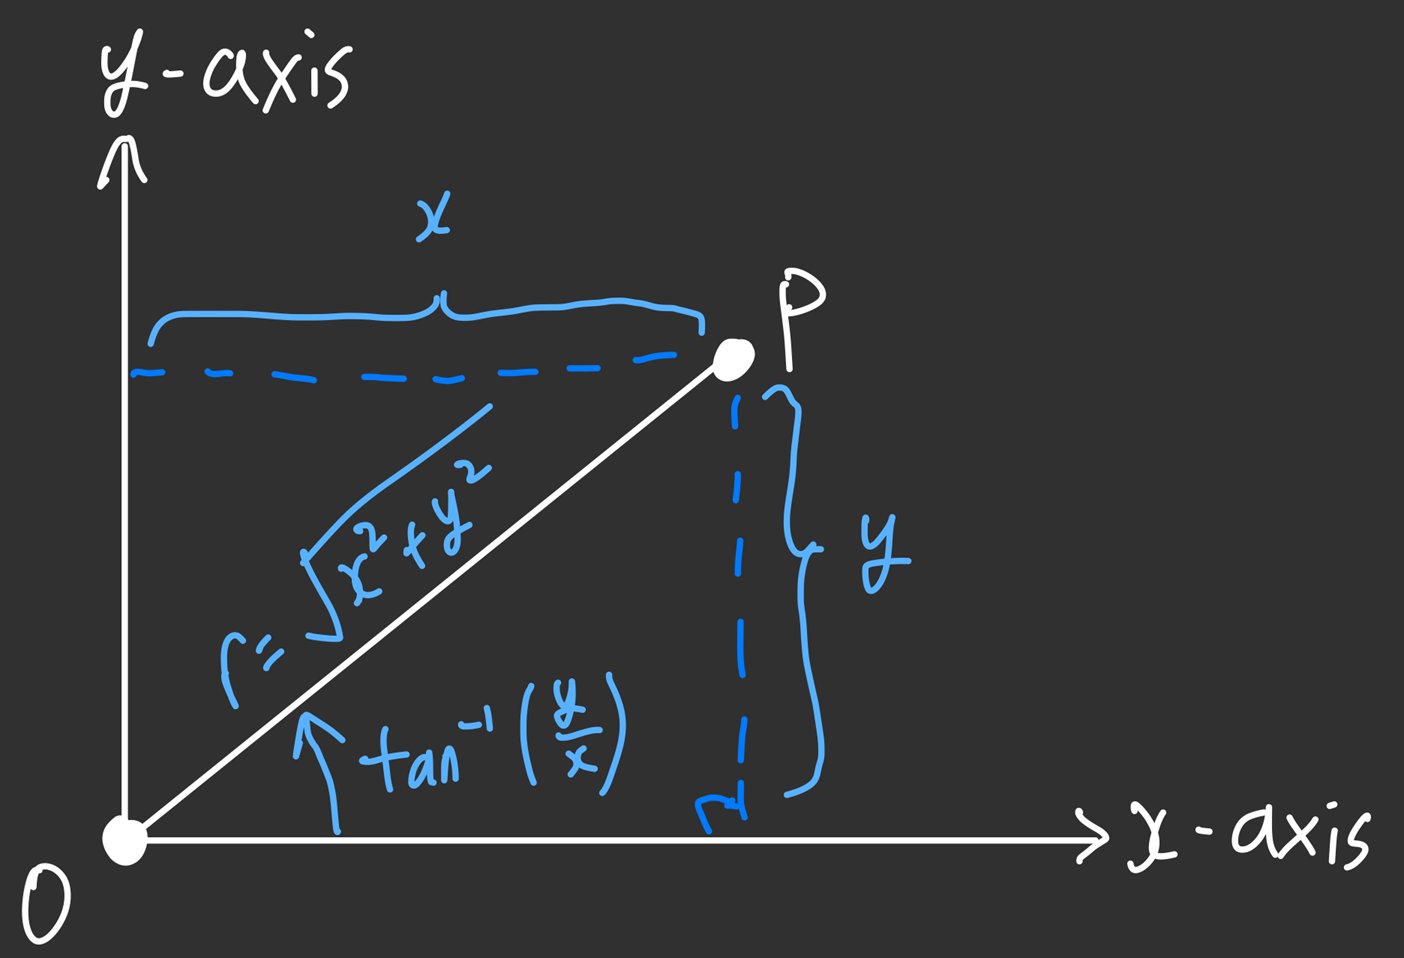 y-axis
x
P
r = √(x² + y²)
y
tan⁻¹ (y/x)
x-axis
O